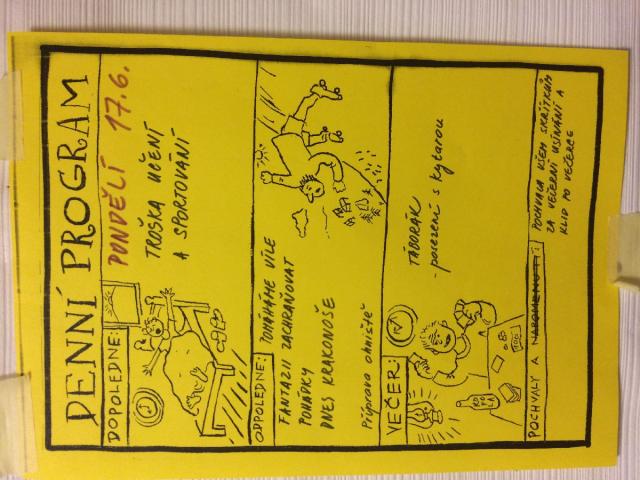 DENNÍ PROGRAM
PONDĚLÍ 17.6.
DOPOLEDNE:
TROŠKA UČENÍ
A SPORTOVÁNÍ
ODPOLEDNE:
POMÁHÁME VÍLE
FANTAZII ZACHRAŇOVAT
POHÁDKY
DNES KRAKONOŠE
Příprava ohniště
VEČER:
TÁBORÁK
- posezení s kytarou
KOFOLA
POCHVALY A NAPOMENUTÍ:
POCHVALA VŠEM SKŘÍTKŮM
ZA VEČERNÍ USÍNÁNÍ A
KLID PO VEČERCE